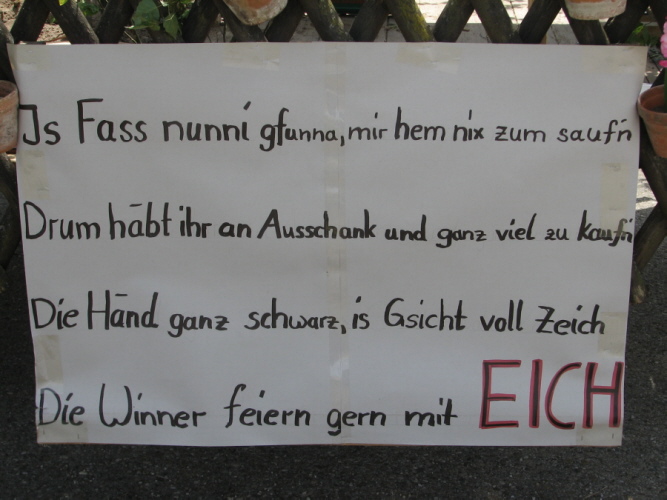 Is Fass nunni gfunna, mir hem nix zum saufn
Drum hābt ihr an Ausschank und ganz viel zu kaufn
Die Händ ganz schwarz, is Gsicht voll Zeich
Die Winner feiern gern mit EICH